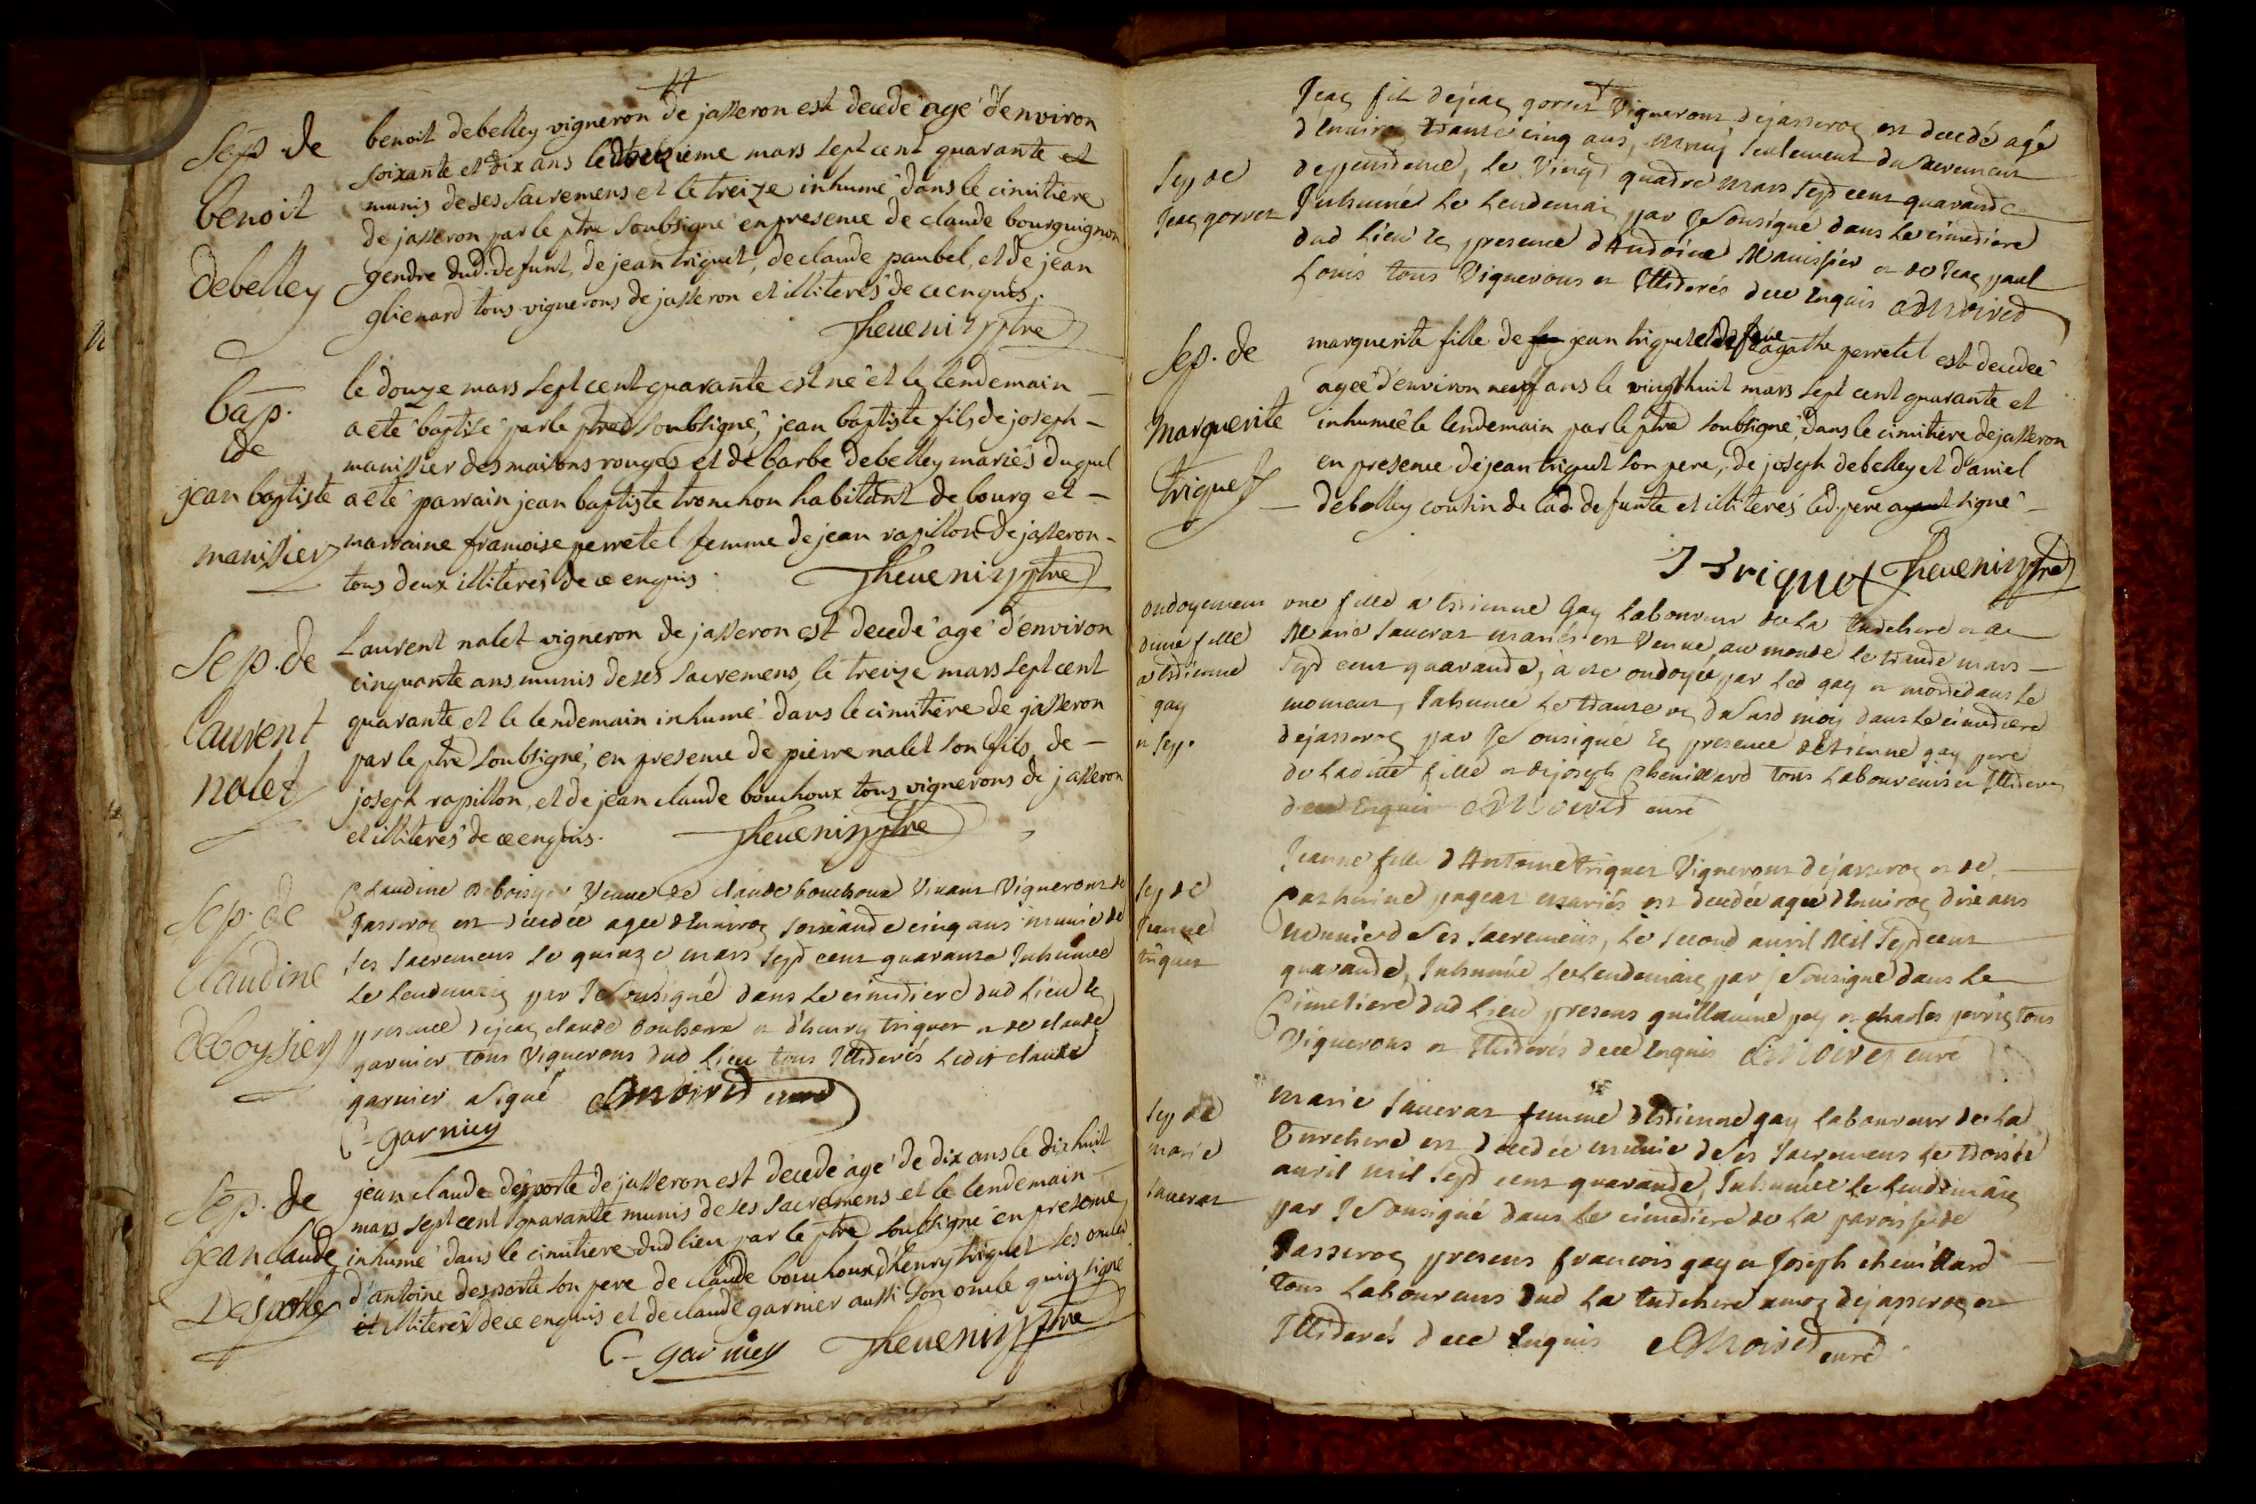 Sep. de
benoit
debelley
benoit debelley vigneron de jasseron est decedé agé d'environ
soixante et dix ans le douzieme mars sept cent quarante et
munis de ses sacremens et le treize inhumé dans le cimitiere
de jasseron par le ptre soubsigné en presence de claude bourguignon
gendre dud. defunt, de jean triquet, de claude paubel, et de jean
glienard tous vignerons de jasseron et illiterés de ce enquis.
Thevenin ptre
bap.
de
jean baptiste
manissier
le douze mars sept cent quarante est né et le lendemain
a eté baptisé par le ptre soubsigné, jean baptiste fils de joseph
manissier des maisons rouges et de barbe debelley mariés duquel
a eté parrain jean baptiste tronchon habitant de bourg et
marraine francoise perretel femme de jean rapillon de jasseron
tous deux illiterés de ce enquis. Thevenin ptre
Sep. de
Laurent
nalet
Laurent nalet vigneron de jasseron est decedé agé d'environ
cinquante ans munis de ses sacremens, le treize mars sept cent
quarante et le lendemain inhumé dans le cimitiere de jasseron
par le ptre soubsigné, en presence de pierre nalet son fils, de
joseph rapillon, et de jean claude bouchoux tous vignerons de jasseron
et illiterés de ce enquis. Thevenin ptre
Sep. de
claudine
deboyssier
Claudine veuve de claude bouchoux vivant vigneron de
jasseron est decedée agée d'environ soixante cinq ans munie de
ses sacremens le quinze mars sept cent quarante inhumée
le lendemain par je sousigné dans le cimetiere dud lieu en
presence de jean claude et d'henry triquet et de claude
garnier tous vignerons dud lieu tous illiterés ledit claude
garnier a signé curé
C- garnier
Sep. de
jean claude
Desporte
jean claude desporte de jasseron est decedé agé de dix ans le dixhuit
mars sept cent quarante munis de ses sacremens et le lendemain
inhumé dans le cimitiere dud lieu par le ptre soubsigné en presence
d'antoine desporte son pere de claude bouchoux d'henry triquet ses oncles
et illiterés de ce enquis et de claude garnier aussi son oncle qui a signé
C- garnier Thevenin ptre
Sep de
Jean gorret
Jean fils de jean gorret vigneron de jasseron est decedé agé
d'environ trante cinq ans, muni seulement du sacrement
de penitence, le vingt quatre mars sept cent quarante
inhumé le lendemain par je sousigné dans le cimetiere
dud lieu en presence d'Antoine Manissier et de Jean paul
Louis tous vignerons et illiterés de ce enquis
Sep. de
Marguerite
triquet
marguerite fille de jean triquet et de agathe perretel est decedée
agée d'environ neuf ans le vingthuit mars sept cent quarante et
inhumée le lendemain par le ptre soubsigné, dans le cimitiere de jasseron
en presence de jean triquet son pere, de joseph debelley et daniel
debelley cousin de lad. defunte et illiterés led. pere ayant signé
J Triquet Thevenin ptre
ondoyement
d'une fille
a etienne
gay
et sep.
une fille a etienne gay laboureur de la et de
Marie saverat mariés est venue au monde le trente mars
sept cent quarante, a eté ondoyée par led gay et morte dans le
moment, inhumée le trante un dud mois dans le cimetiere
de jasseron par je sousigné en presence d'Etienne gay pere
de laditte fille et de joseph Chevillard tous laboureurs et illiterés
de ce enquis curé
Sep de
Jeanne
triquet
Jeanne fille d'Antoine triquet vigneron de jasseron et de
Catherine pageat mariés est decedée agée d'environ dix ans
munie de ses sacremens, le second avril mil sept cent
quarante, inhumée le lendemain par je sousigné dans le
Cimetiere dud lieu presens guillaume pey et charles perrin tous
vignerons et illiterés de ce enquis curé
Sep de
marie
saverat
Marie saverat femme d'Etienne gay laboureur de la
est decedée munie de ses sacremens le troisie
avril mil sept cent quarante, inhumée le lendemain
par je sousigné dans le cimetiere de la paroisse de
Jasseron presens francois gay et Joseph chevillard
tous laboureurs dud la de jasseron et
illiterés de ce enquis curé